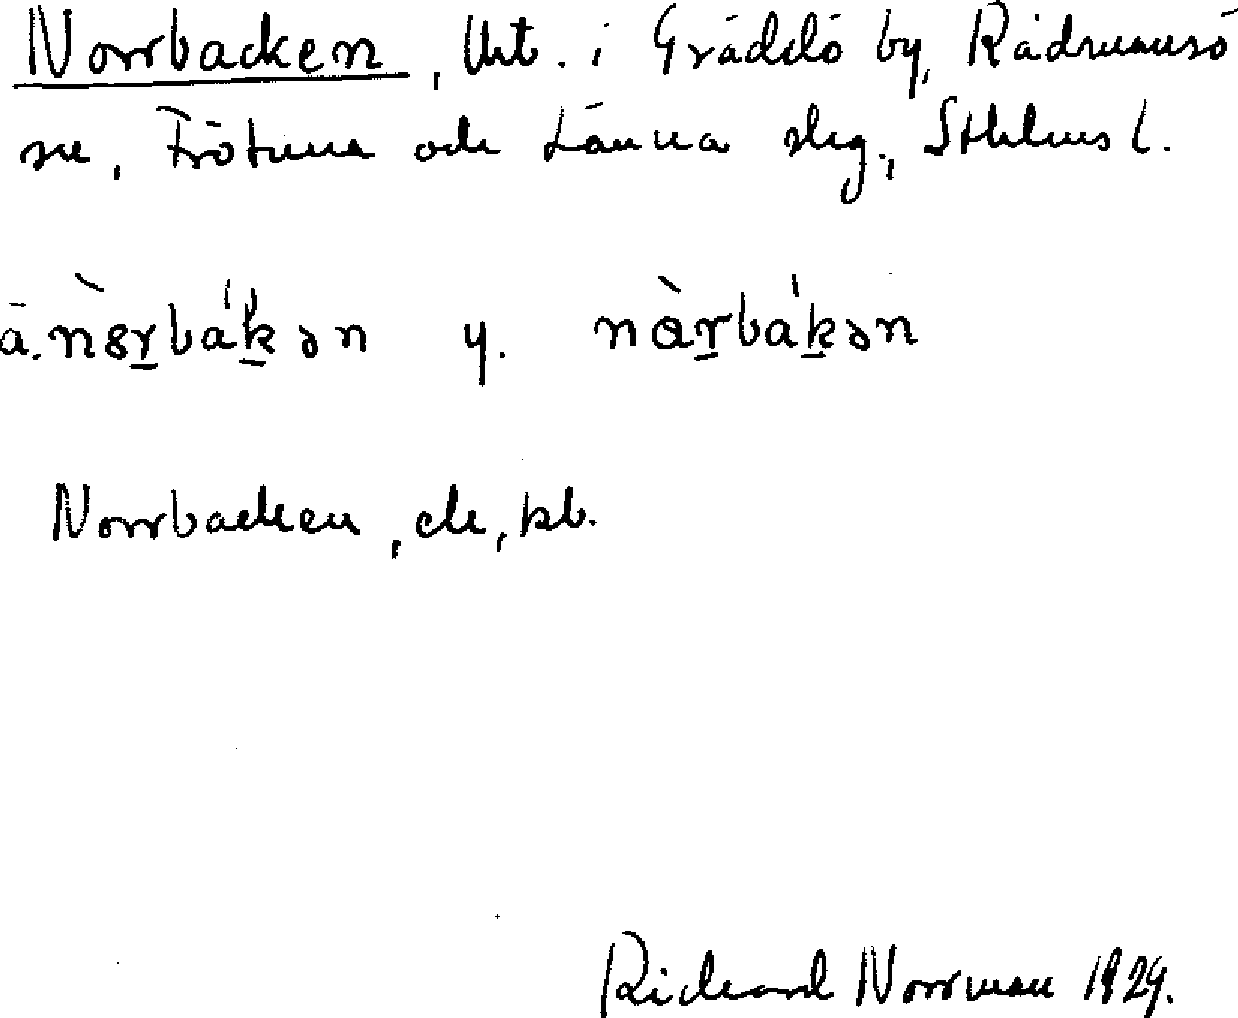 Norrbacken, lht. i Gräddö by, Rådmansö
sn, Frötuna och Länna slg., Sthlms l.
ä. nɞ̀rbák̠ən y. nɑ̀rbák̠ən
Norrbacken, ek, kb.
Richard Norrman 1929.